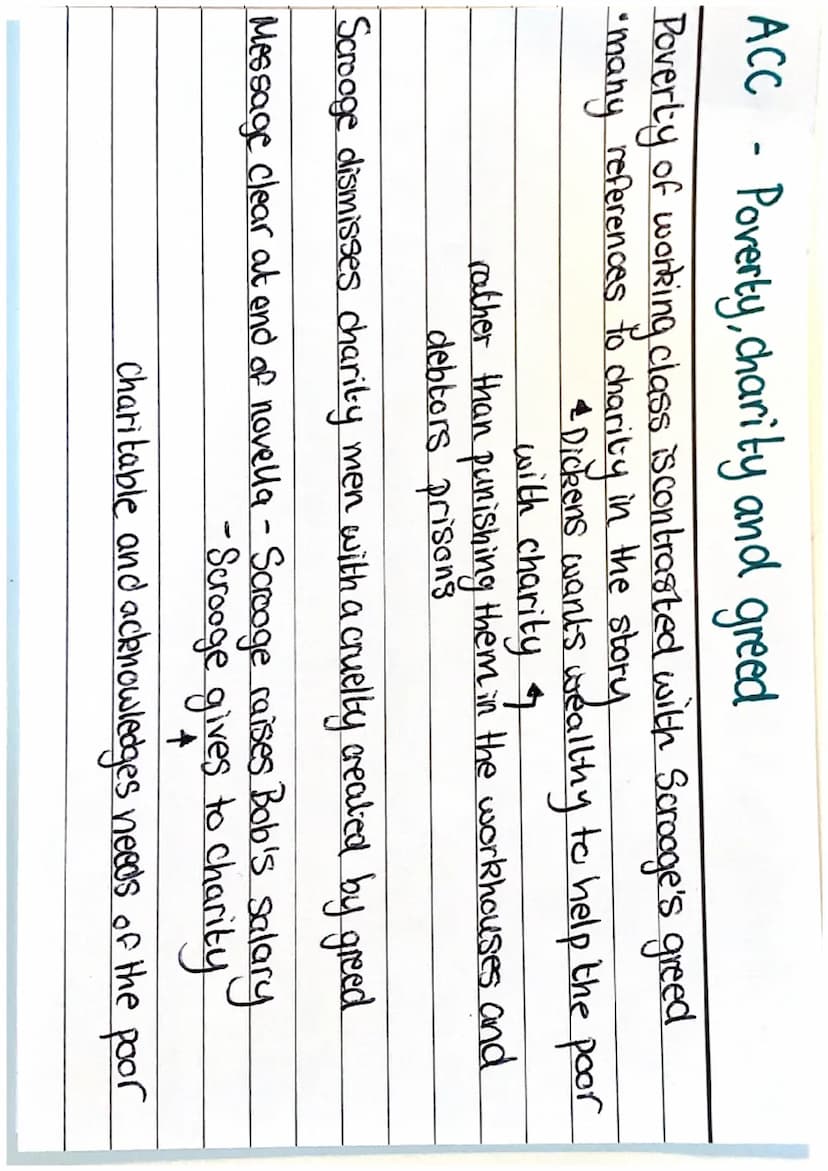 ACC - Poverty, charity and greed
Poverty of working class is contrasted with Scrooge's greed
•many references to charity in the story
Dickens wants wealthy to help the poor
with charity
rather than punishing them in the workhouses and
debtors prisons
Scrooge dismisses charity men with a cruelty created by greed
Message clear at end of novella - Scrooge raises Bob's salary
- Scrooge gives to charity
charitable and acknowledges needs of the poor